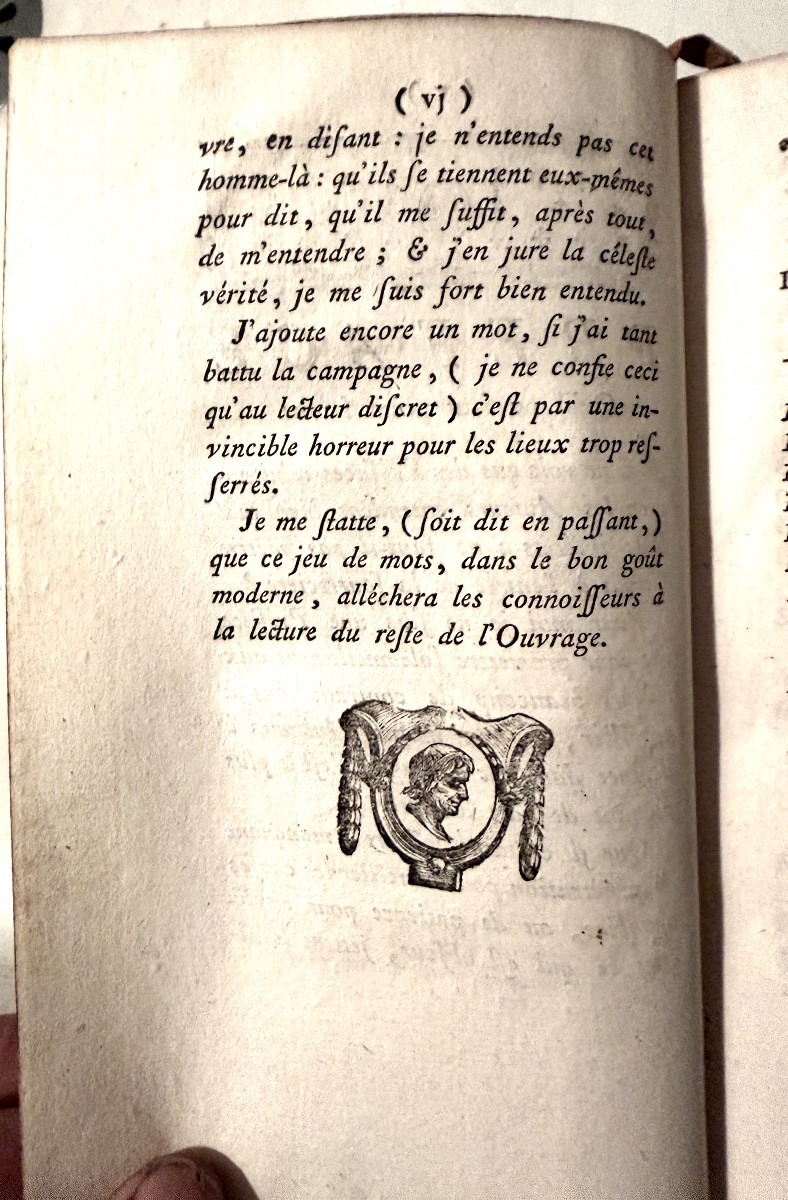 ( vj )
vre, en diſant : je n'entends pas cet
homme-là : qu'ils ſe tiennent eux-mêmes
pour dit, qu'il me ſuffit, après tout,
de m'entendre ; & j'en jure la céleſte
vérité, je me ſuis fort bien entendu.
J'ajoute encore un mot, ſi j'ai tant
battu la campagne, ( je ne confie ceci
qu'au lecteur diſcret ) c'eſt par une in-
vincible horreur pour les lieux trop reſ-
ſerrés.
Je me flatte, (ſoit dit en paſſant,)
que ce jeu de mots, dans le bon goût
moderne, alléchera les connoiſſeurs à
la lecture du reſte de l'Ouvrage.